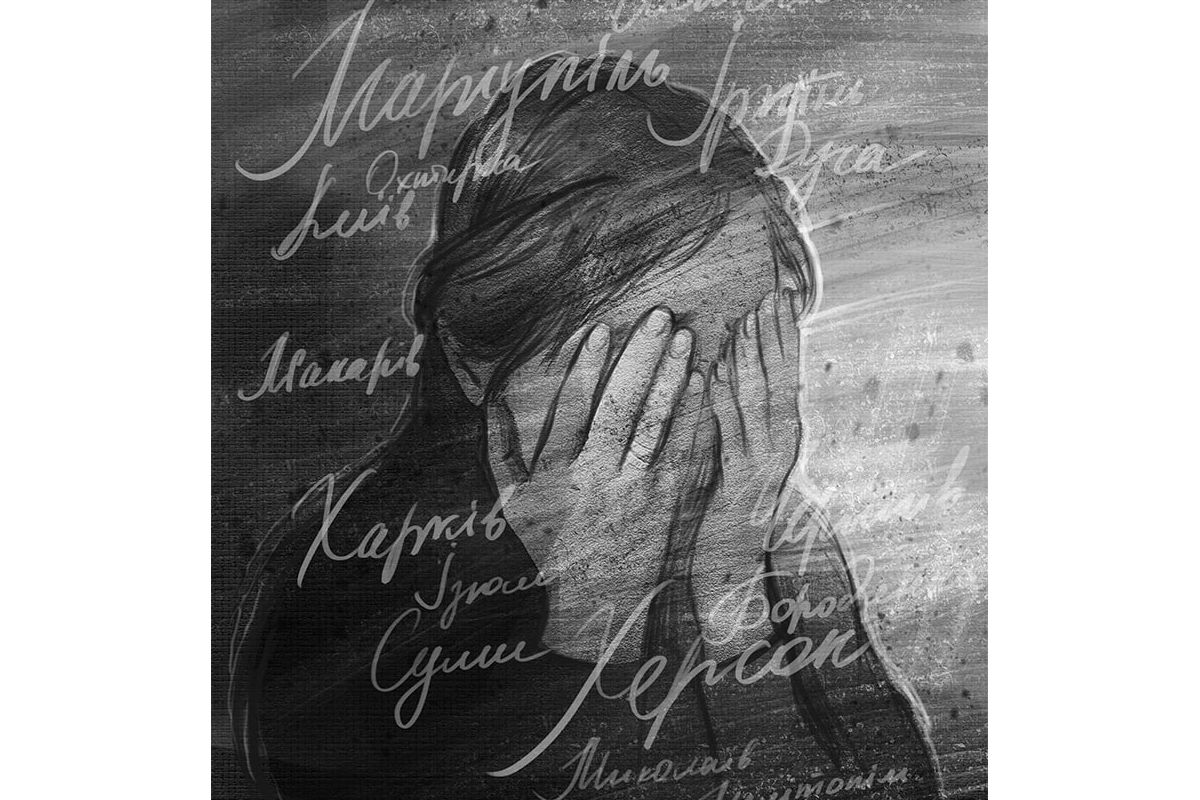 Маріуполь
Ірпінь
Охтирка
Буча
Київ
Макарів
Харків
Чернігів
Ізюм
Бородянка
Суми
Херсон
Миколаїв